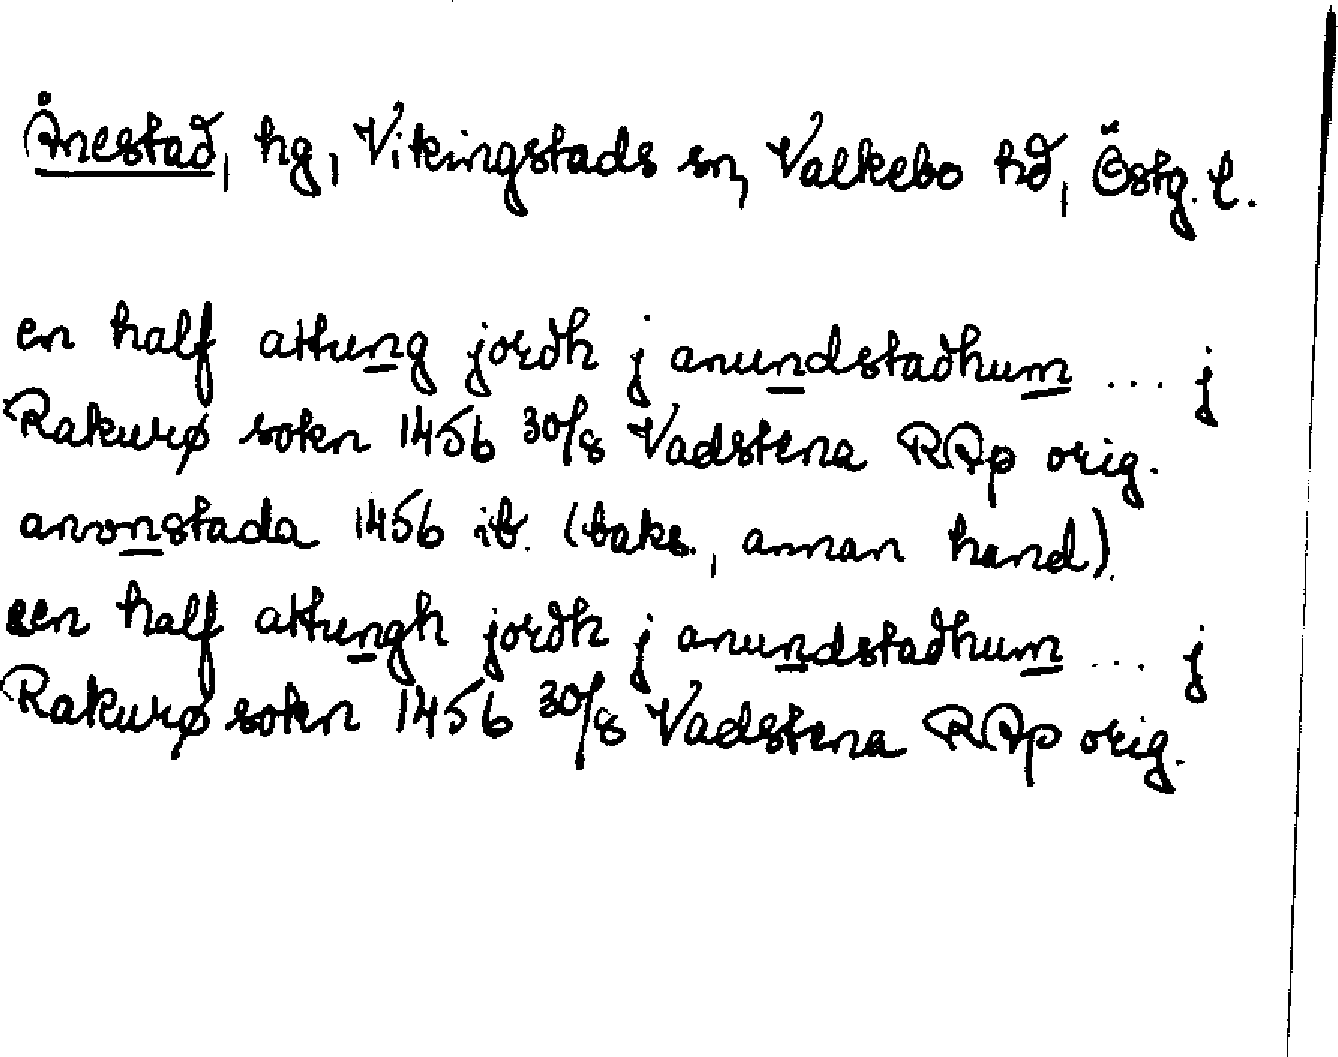 Ånestad, hg, Vikingstads sn, Valkebo hd, Östg. l.
en half attung jordh j anundstadhum ... j
Rakurø sokn 1456 30/8 Vadstena RAp orig.
anonstada 1456 ib. (baks., annan hand).
een half attungh jordh j anundstadhum ... j
Rakurø sokn 1456 30/8 Vadstena RAp orig.